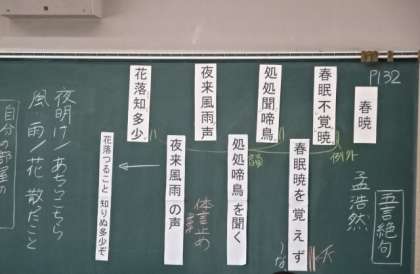 P132
春暁
五言絶句
孟浩然
春眠不覚暁
春眠を覚えず
例外
処処聞啼鳥
処処啼鳥を聞く
夜来風雨声
夜来風雨の声
体言止め
花落知多少
花落つること 知りぬ多少ぞ
夜明け/あちこちら
風雨/花 散だこと
自分の部屋の